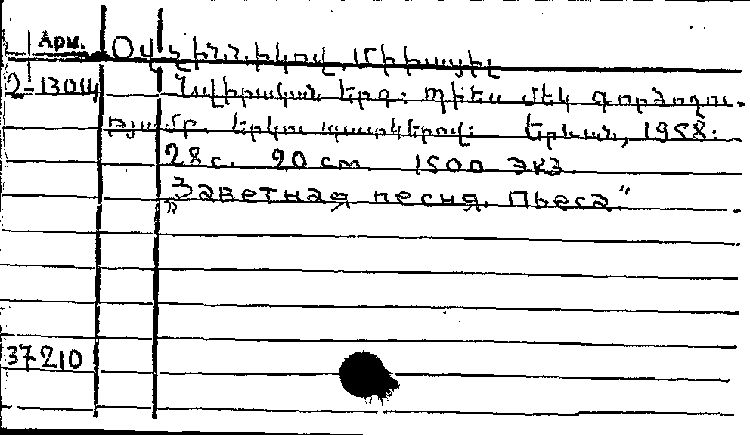 Арм.
Օվչիննիկով, Միխայիլ
2-13044
Նվիրական երգ: Պիես մեկ գործողու-
թյամբ. երկու պատկերով: Երևան, 1958.
28 с. 20 cm. 1500 экз.
„Заветная песня. Пьеса“
37210